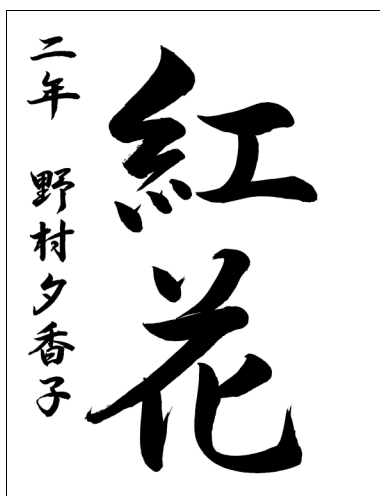 紅花
二年 野村夕香子